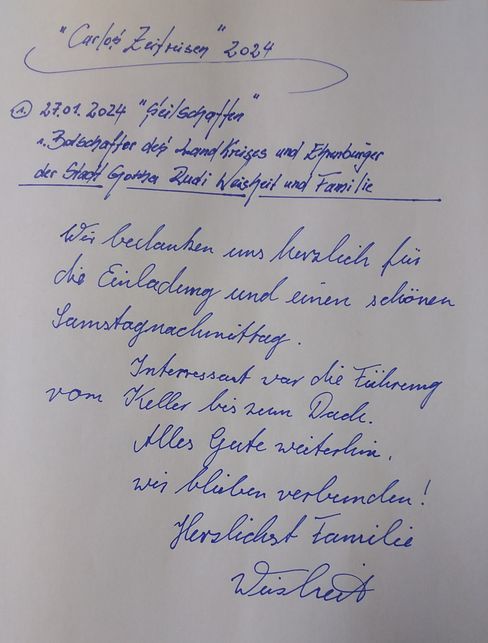 "Carlos Zeitreisen" 2024
1. 27.01.2024 "Seilschaften"
1. Botschafter des Landkreises und Ehrenbürger
der Stadt Gotha Rudi Weisheit und Familie
Wir bedanken uns herzlich für
die Einladung und einen schönen
Samstagnachmittag.
Interressant war die Führung
vom Keller bis zum Dach.
Alles Gute weiterhin,
wir bleiben verbunden!
Herzlichst Familie
Weisheit